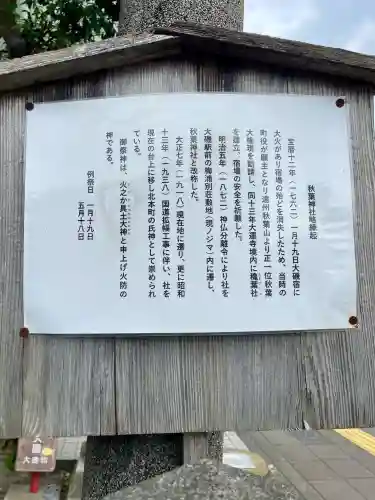 秋葉神社略縁起
宝暦十二年（一七六二）一月十九日大磯宿に
大火があり宿場の殆どを消失したため、当時の
町役が願主となり遠州秋葉山より正一位秋葉
大権現を勧請し、同十三年大運寺境内に穐葉社
を建立、宿場の安全を祈願した。
明治五年（一八七二）神仏分離令により社を
大磯駅前の梅池別荘敷地（現ノジマ）内に遷し、
秋葉神社と改称した。
大正七年（一九一八）現在地に遷り、更に昭和
十三年（一九三八）国道拡幅工事に伴い、社を
現在の台上に移し北本町の氏神として崇められ
ている。
御祭神は、火之か具土大神と申上げ火防の
神である。
例祭日　一月十九日
五月十八日
大磯宿